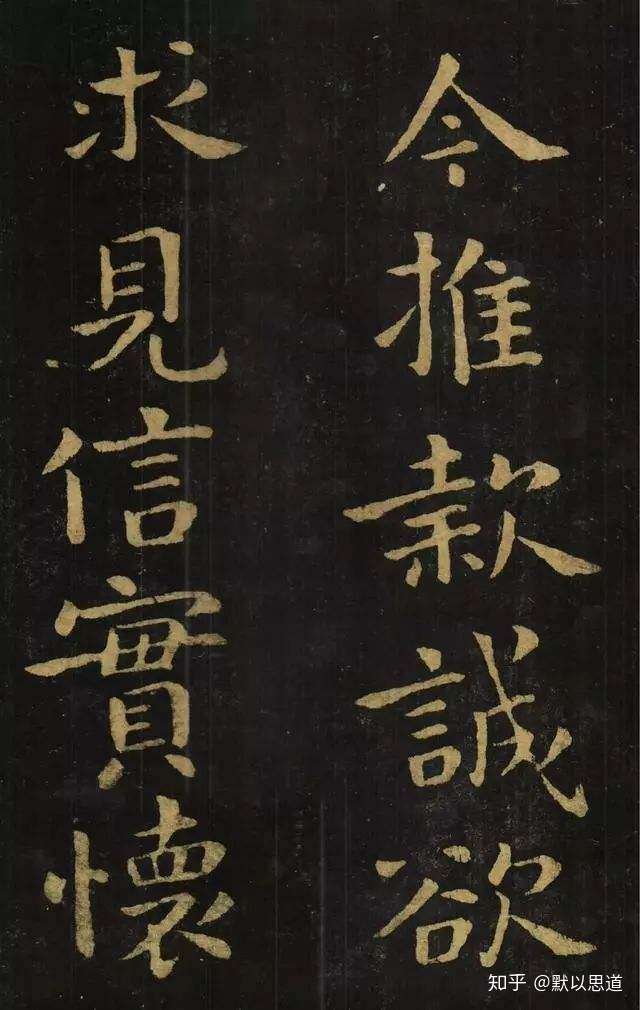 今推款誠欲
求見信實懷
知乎 @默以思道